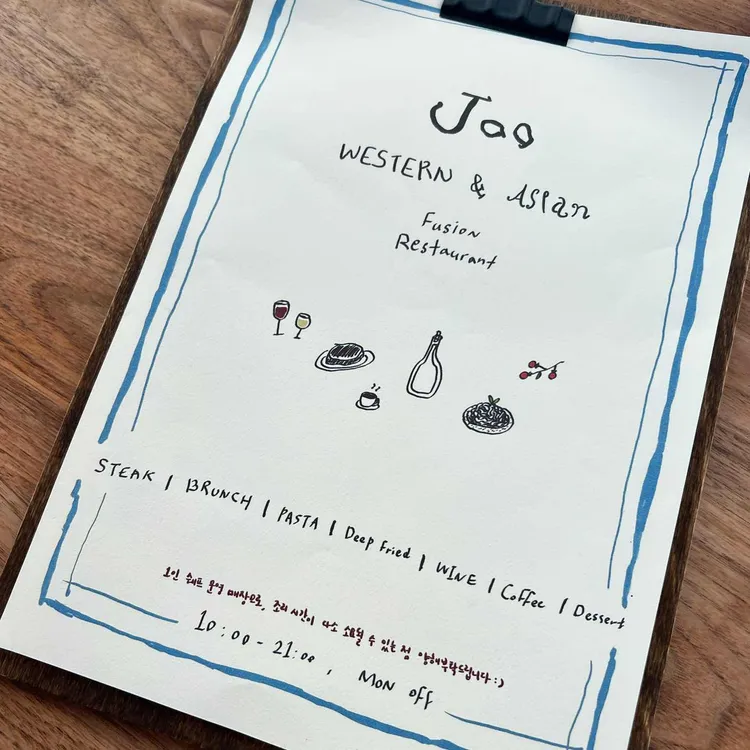 Joo
WESTERN & Asian
Fusion
Restaurant
STEAK | BRUNCH | PASTA | Deep Fried | WINE | Coffee | Dessert
1인 쉐프 운영 매장으로, 조리 시간이 다소 소요될 수 있는 점 양해부탁드립니다 :)
10:00 - 21:00, MON off